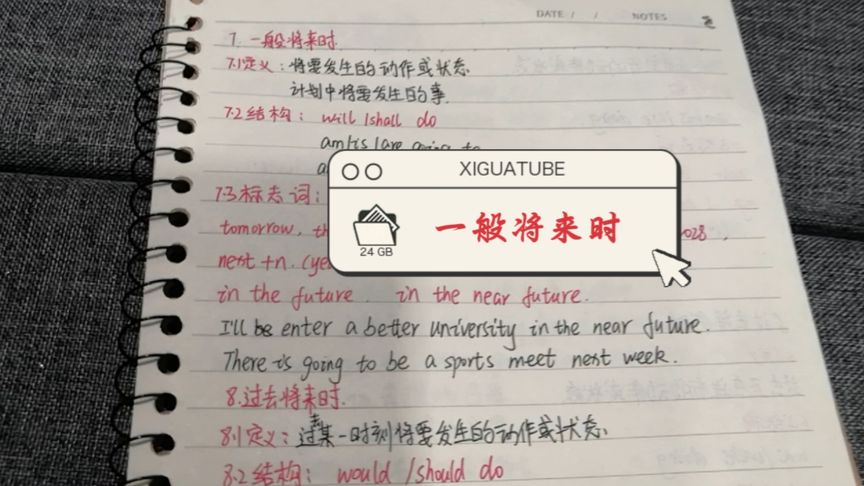 DATE / / NOTES
7. 一般将来时.
7.1定义：将要发生的动作或状态
计划中将要发生的事.
7.2结构： will /shall do
am/is/are going to
7.3标志词：
XIGUATUBE
一般将来时
24 GB
tomorrow,
next +n.
in the future. in the near future.
I'll be enter a better university in the near future.
There is going to be a sports meet next week.
8.过去将来时.
8.1定义：过去某一时刻将要发生的动作或状态.
8.2结构： would /should do